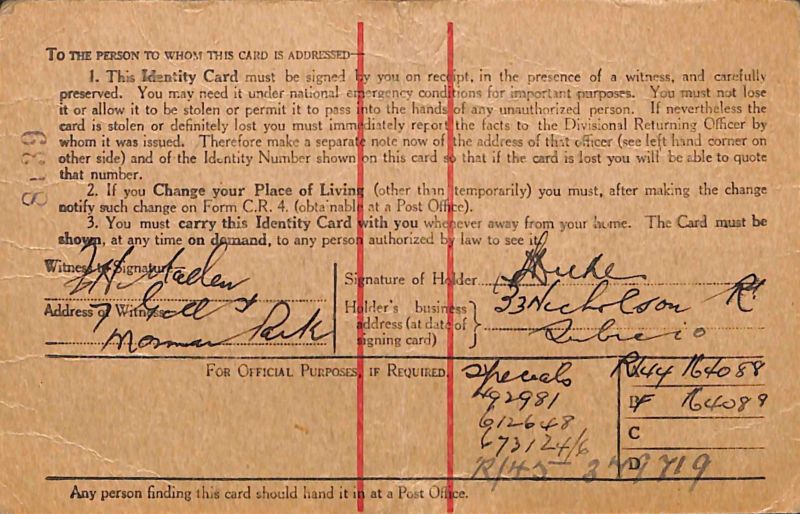 TO THE PERSON TO WHOM THIS CARD IS ADDRESSED—
1. This Identity Card must be signed by you on receipt, in the presence of a witness, and carefully
preserved. You may need it under national emergency conditions for important purposes. You must not lose
it or allow it to be stolen or permit it to pass into the hands of any unauthorized person. If nevertheless the
card is stolen or definitely lost you must immediately report the facts to the Divisional Returning Officer by
whom it was issued. Therefore make a separate note now of the address of that officer (see left hand corner on
other side) and of the Identity Number shown on this card so that if the card is lost you will be able to quote
that number.
2. If you Change your Place of Living (other than temporarily) you must, after making the change
notify such change on Form C.R. 4. (obtainable at a Post Office).
3. You must carry this Identity Card with you whenever away from your home. The Card must be
shown, at any time on demand, to any person authorized by law to see it.
Witness to Signature
Address of Witness 7
Norman Park
Signature of Holder
Holder's business address (at date of signing card)
33 Nicholson Rd
Subiaco
FOR OFFICIAL PURPOSES, IF REQUIRED.
Specials
492981
612648
673124/6
R/45 379719
R/44 164088
B 164089
C
D
Any person finding this card should hand it in at a Post Office.